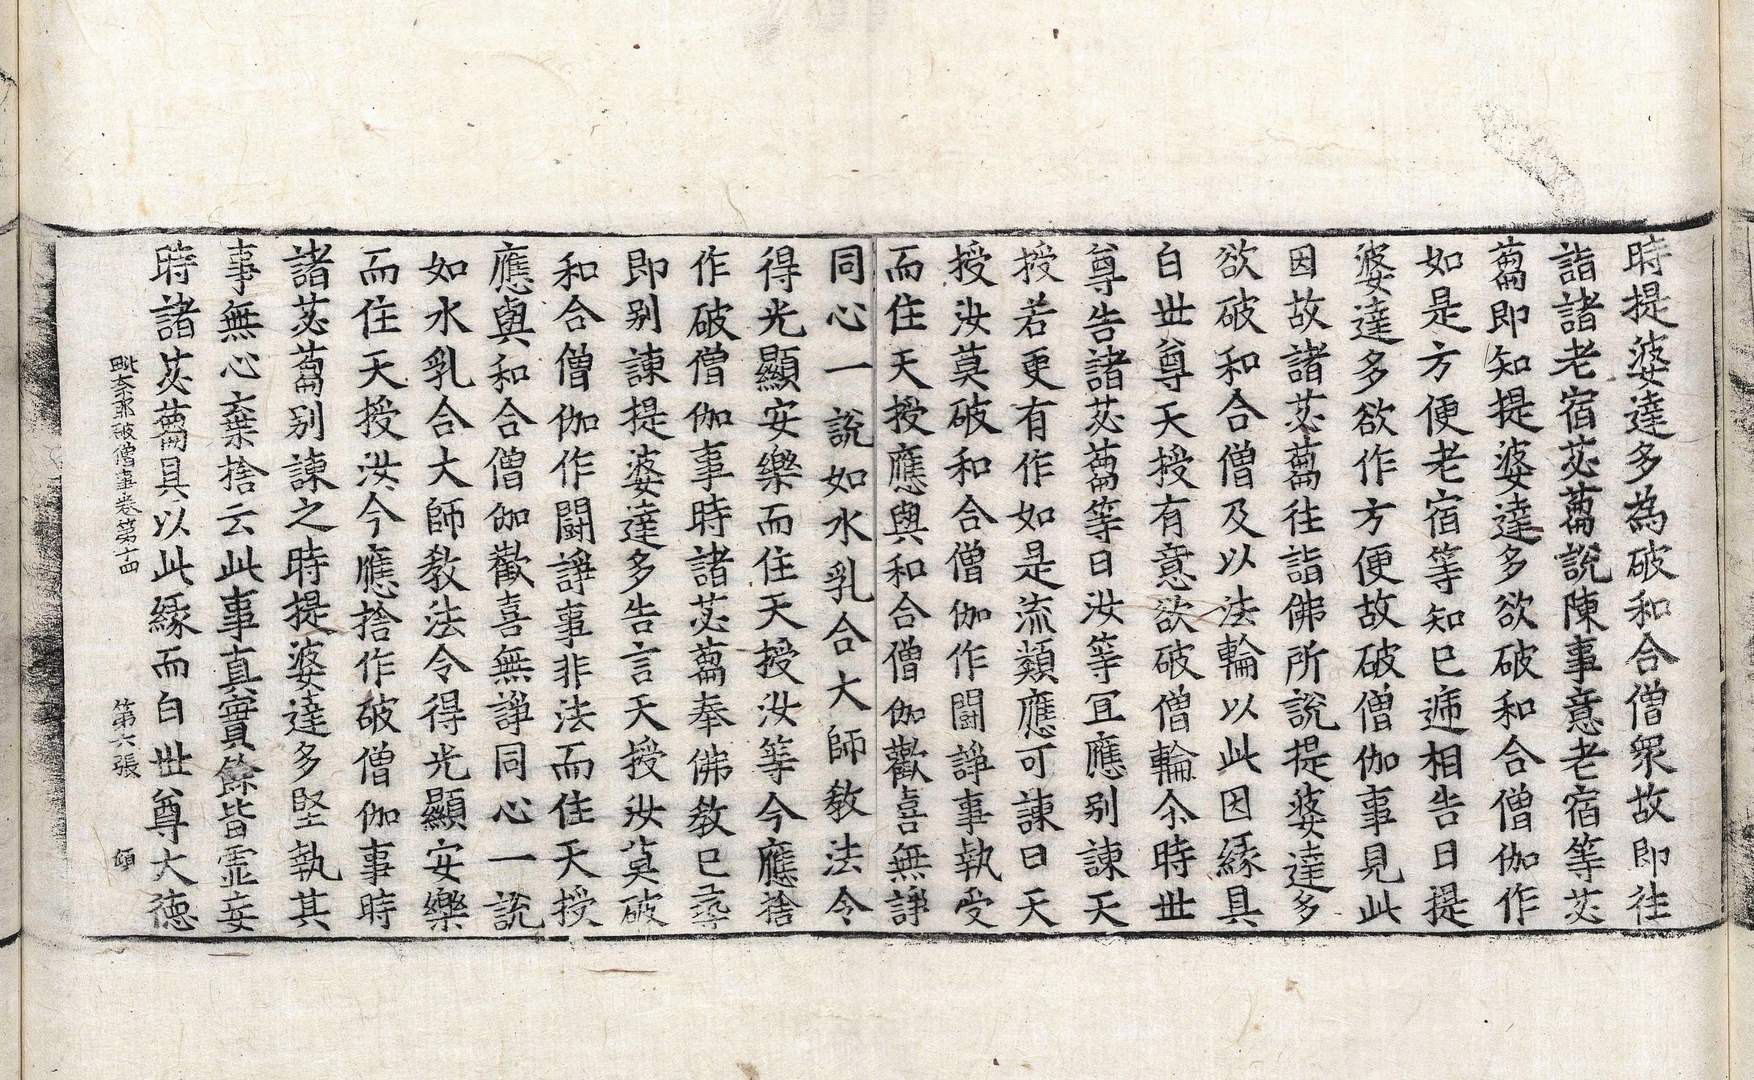 時提婆達多為破和合僧眾故即往
詣諸老宿苾蒭說陳事意老宿等苾
蒭即知提婆達多欲破和合僧伽作
如是方便老宿等知已遞相告曰提
婆達多欲作方便故破僧伽事見此
因故諸苾蒭往詣佛所說提婆達多
欲破和合僧及以法輪以此因緣具
白世尊天授有意欲破僧輪尒時世
尊告諸苾蒭等曰汝等宜應別諫天
授若更有作如是流類應可諫曰天
授汝莫破和合僧伽作鬪諍事執受
而住天授應與和合僧伽歡喜無諍
同心一說如水乳合大師教法令
得光顯安樂而住天授汝等今應捨
作破僧伽事時諸苾蒭奉佛教已尋
即別諫提婆達多告言天授汝莫破
和合僧伽作鬪諍事非法而住天授
應與和合僧伽歡喜無諍同心一說
如水乳合大師教法令得光顯安樂
而住天授汝今應捨作破僧伽事時
諸苾蒭別諫之時提婆達多堅執其
事無心棄捨云此事真實餘皆虛妄
時諸苾蒭具以此緣而白世尊大德
毗奈耶破僧事卷第十四 第六張